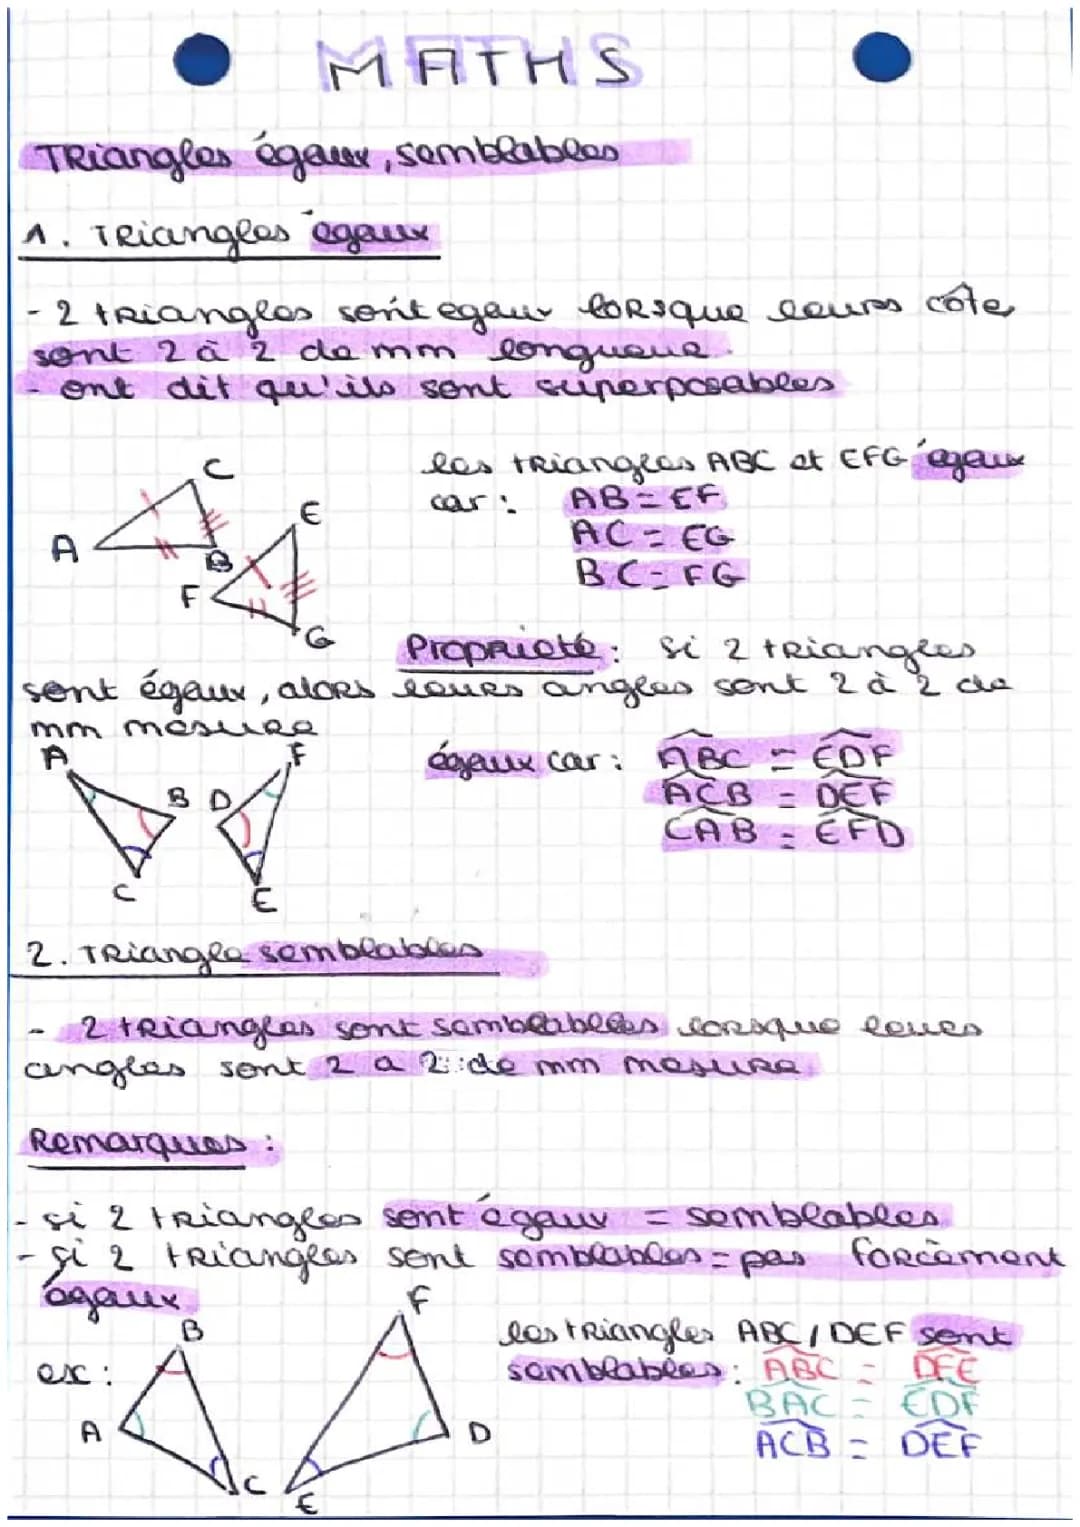 MATHS
TRiangles égaux, semblables
1. TRiangles égaux
- 2 tRiangles sont egaux loRsque leurs côte
sont 2 à 2 de mm longueuR.
- ont dit qu'ils sont superposables
C
E
A
B
F
G
les tRiangles ABC et EFG égaux
car : AB = EF
AC = EG
BC = FG
PropRieté : si 2 tRiangles
sont égaux, aloRs leuRs angles sont 2 à 2 de
mm mesuRe
A
F
B
D
C
E
égaux car : ABC = EDF
ACB = DEF
CAB = EFD
2. TRiangle semblables
- 2 tRiangles sont semblables lorsque leurs
angles sont 2 a 2 de mm mesuRe
Remarques :
- si 2 tRiangles sont égaux = semblables
- si 2 tRiangles sont semblables = pas foRcèment
égaux
ex :
B
F
A
D
C
E
les tRiangles ABC / DEF sont
semblables : ABC = DFE
BAC = EDF
ACB = DEF